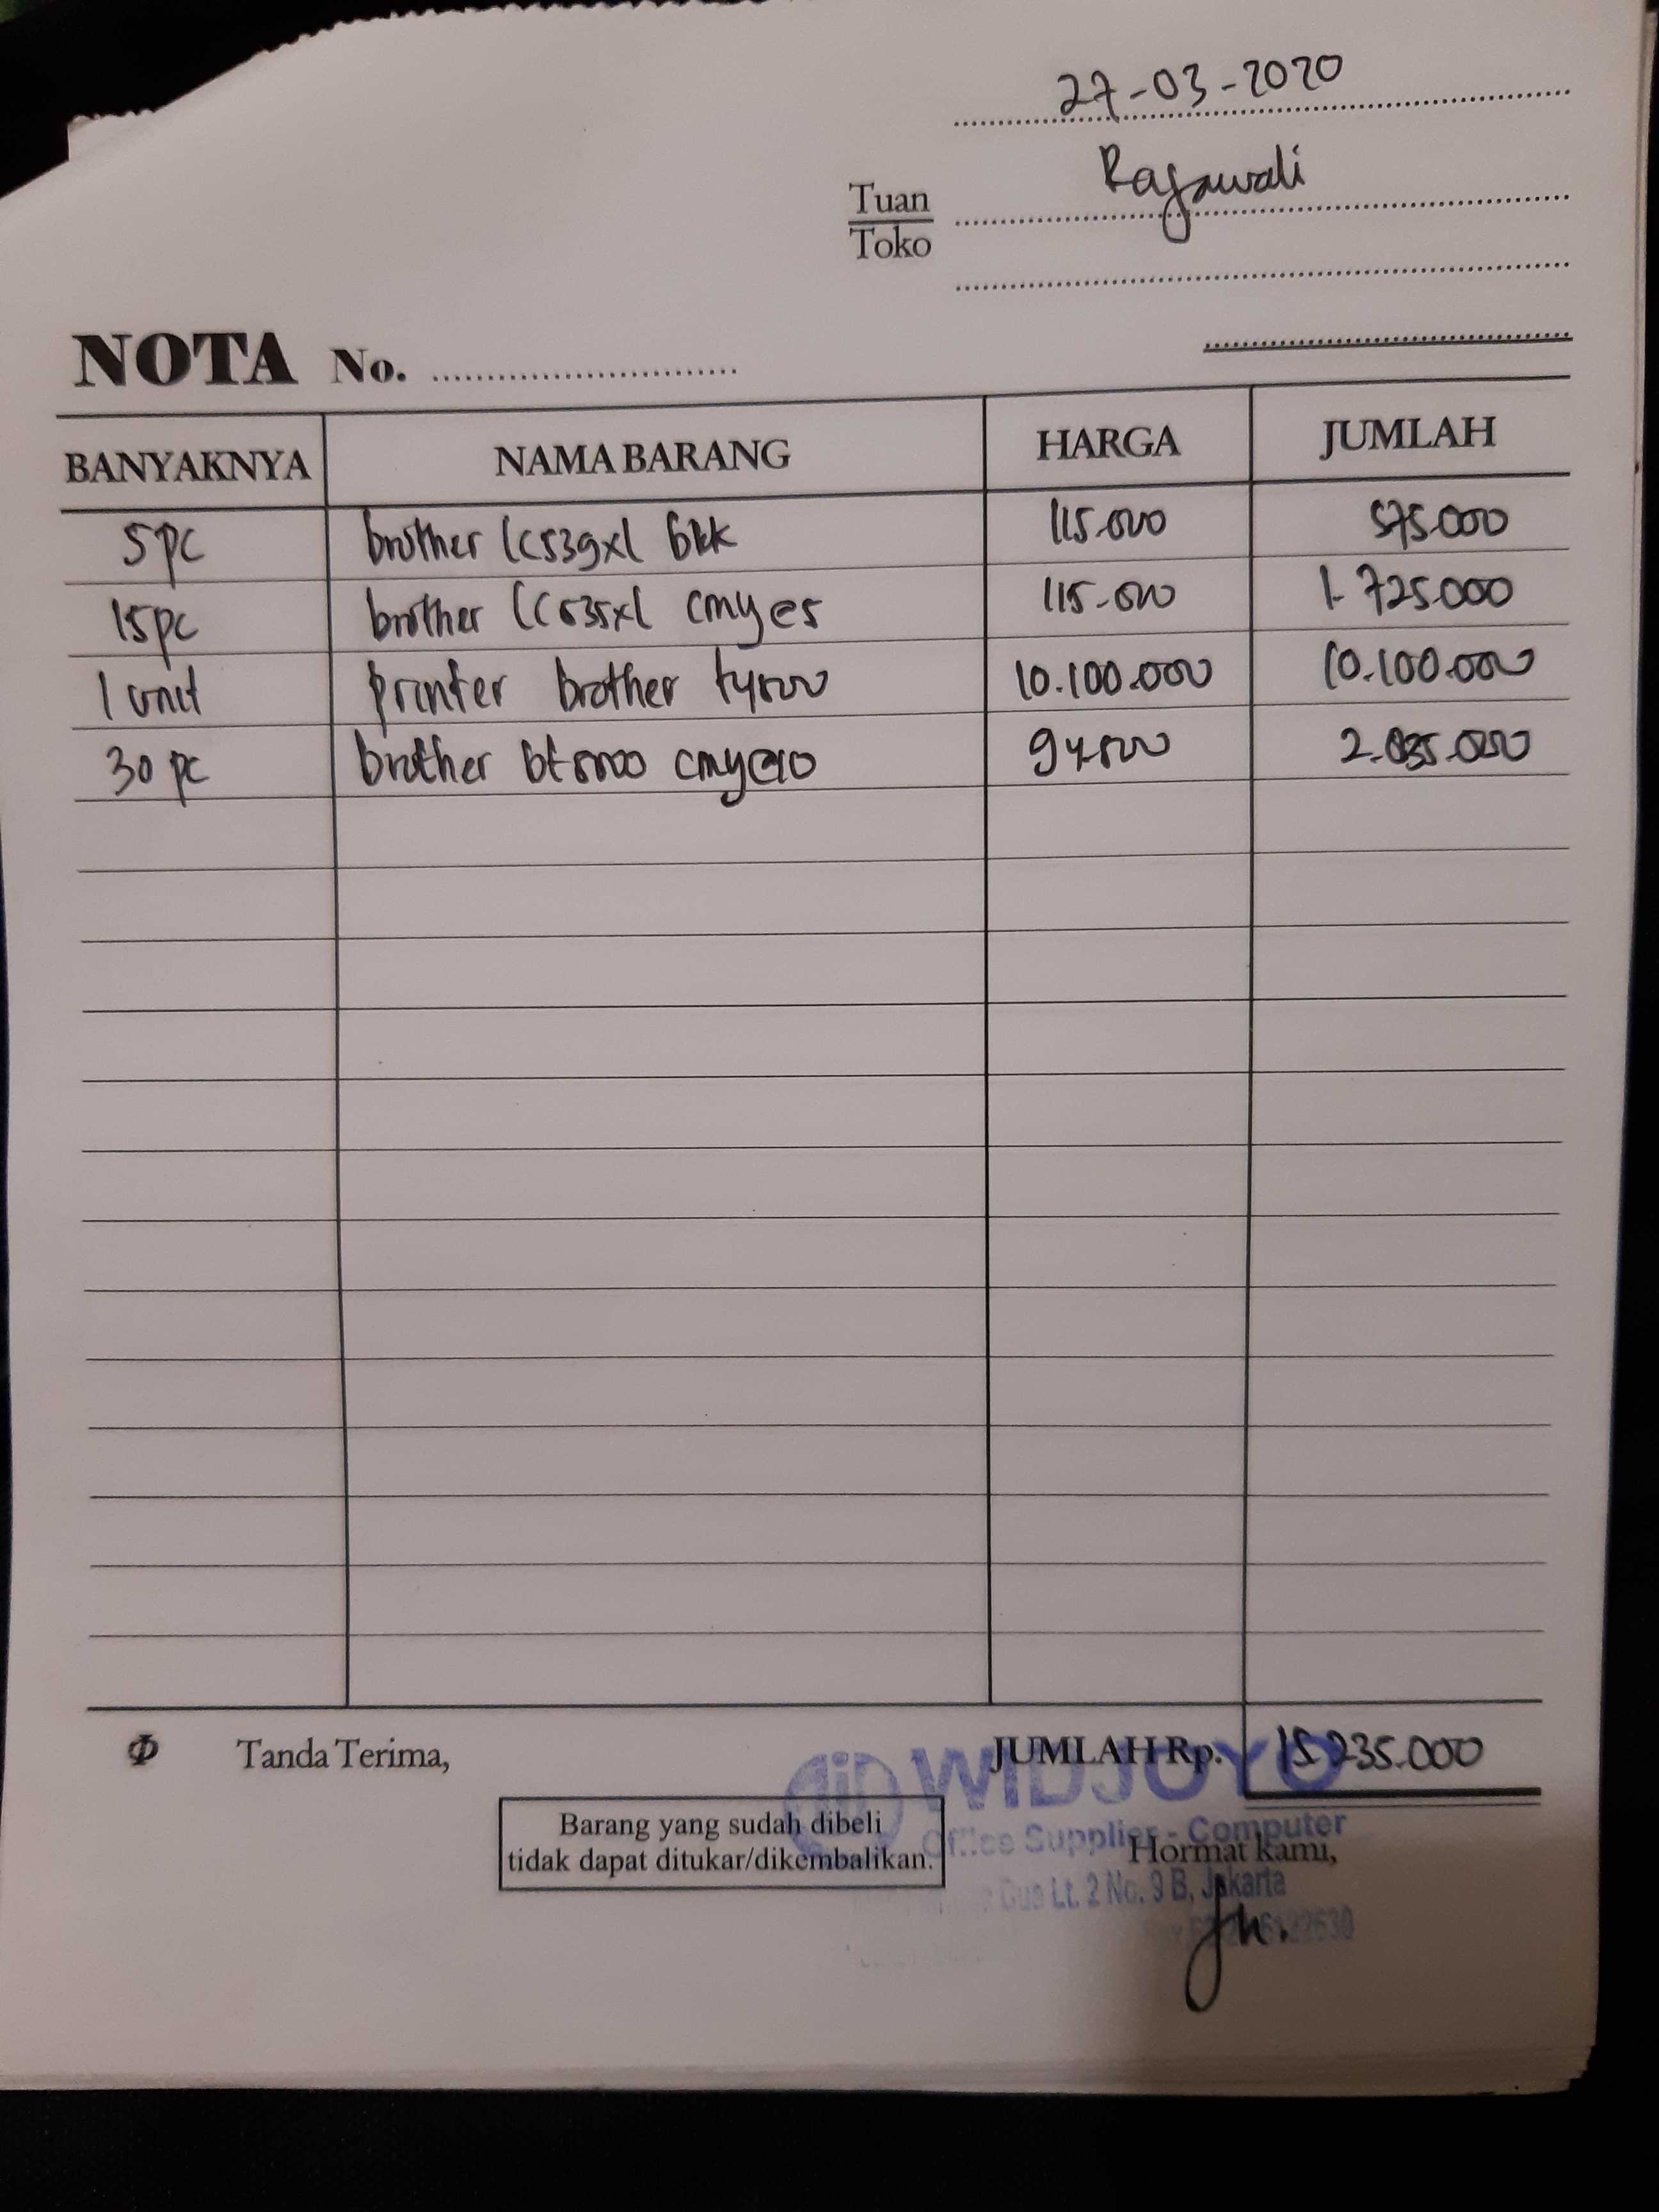 27-03-2020
Tuan
Toko
Rajawali
NOTA No.
BANYAKNYA NAMA BARANG HARGA JUMLAH
5 pc brother lc539xl blk 115.000 575.000
15 pc brother lc535xl cmy@5 115.000 1.725.000
1 unit printer brother t4500 10.100.000 10.100.000
30 pc brother bt5000 cmy@10 94.500 2.835.000
Φ Tanda Terima, JUMLAH Rp. 15.235.000
WIDJOYO
Barang yang sudah dibeli
tidak dapat ditukar/dikembalikan.
Office Supplier - Computer
Hormat kami,
Dua Lt. 2 No. 9 B, Jakarta